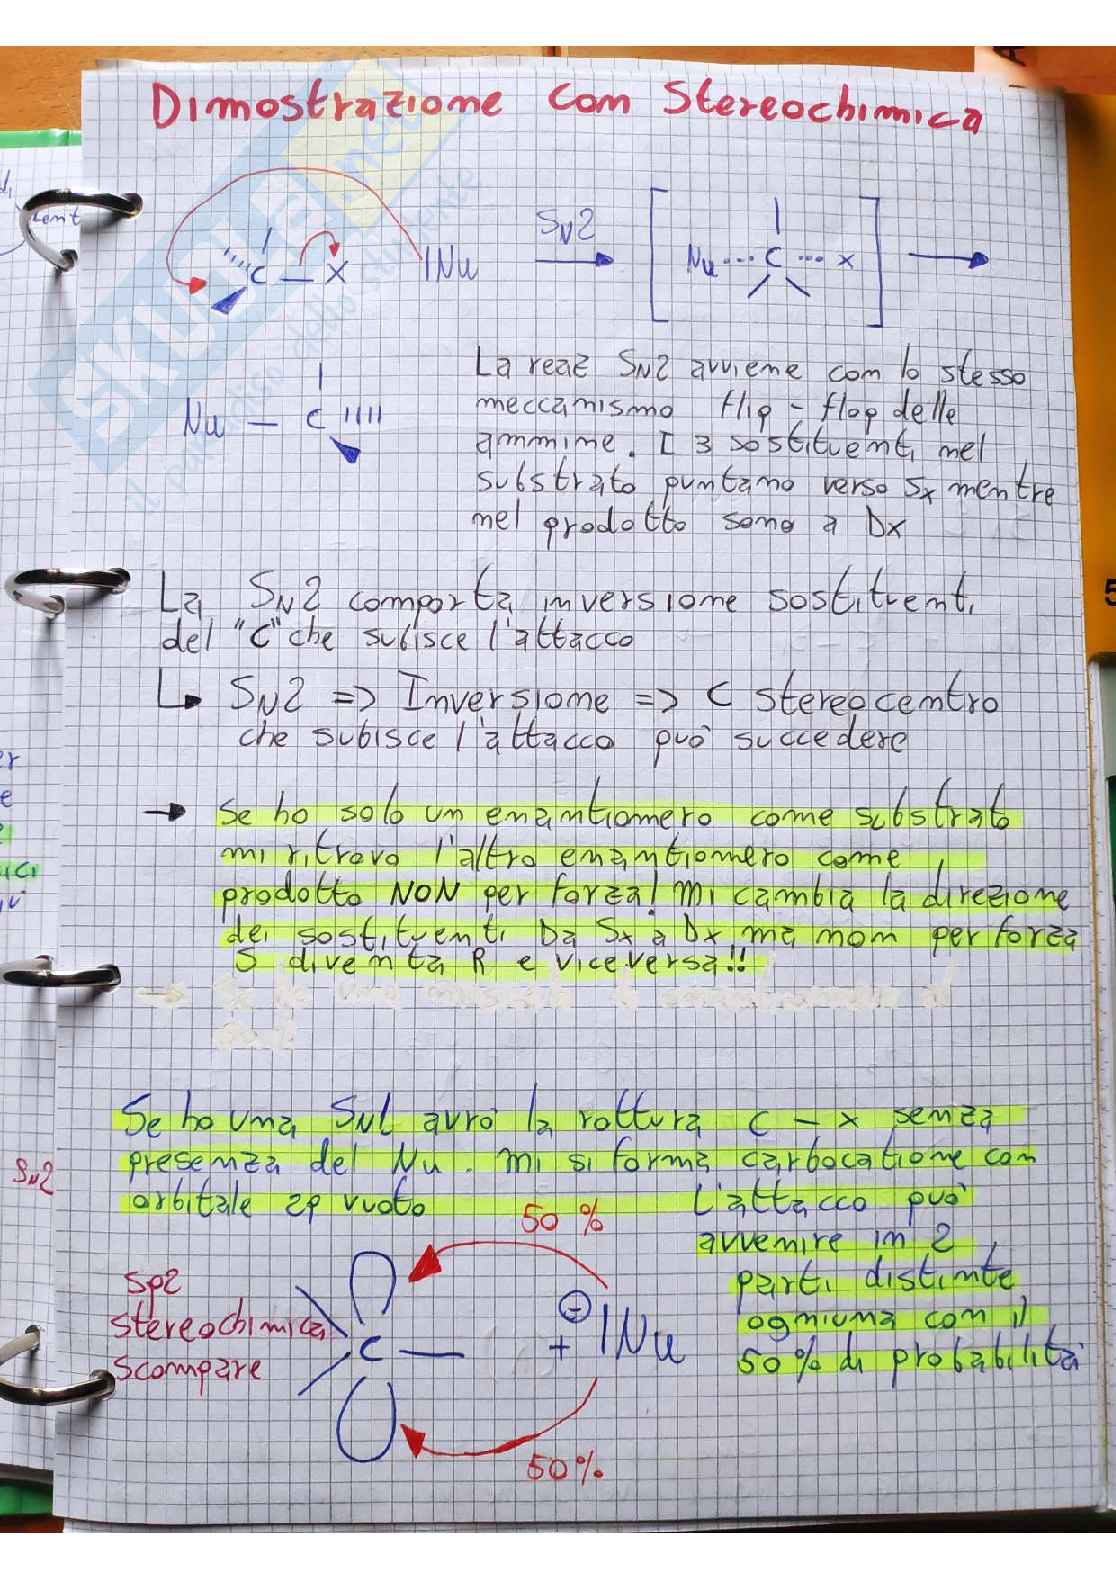 Dimostrazione con Stereochimica
C — X
INu
SN2
Nu ... C ... x
Nu — C
La reaz SN2 avviene con lo stesso
meccanismo flip - flop delle
ammine. I 3 sostituenti nel
substrato puntano verso Sx mentre
nel prodotto sono a Dx
La SN2 comporta inversione sostituenti
del "C" che subisce l'attacco
↳ SN2 => Inversione => C stereocentro
che subisce l'attacco può succedere
→ Se ho solo un enantiomero come substrato
mi ritrovo l'altro enantiomero come
prodotto NON per forza! mi cambia la direzione
dei sostituenti Da Sx a Dx ma non per forza
S diventa R e viceversa!!
Se ho una SN1 avrò la rottura C — X senza
presenza del Nu. mi si forma carbocatione con
orbitale 2p vuoto
L'attacco può
avvenire in 2
parti distinte
ogniuna con il
50% di probabilità
50 %
Sp2
stereochimica
scompare
C —
+ INu
50%
SN2
SKUOLA.net
il paradiso dello studente